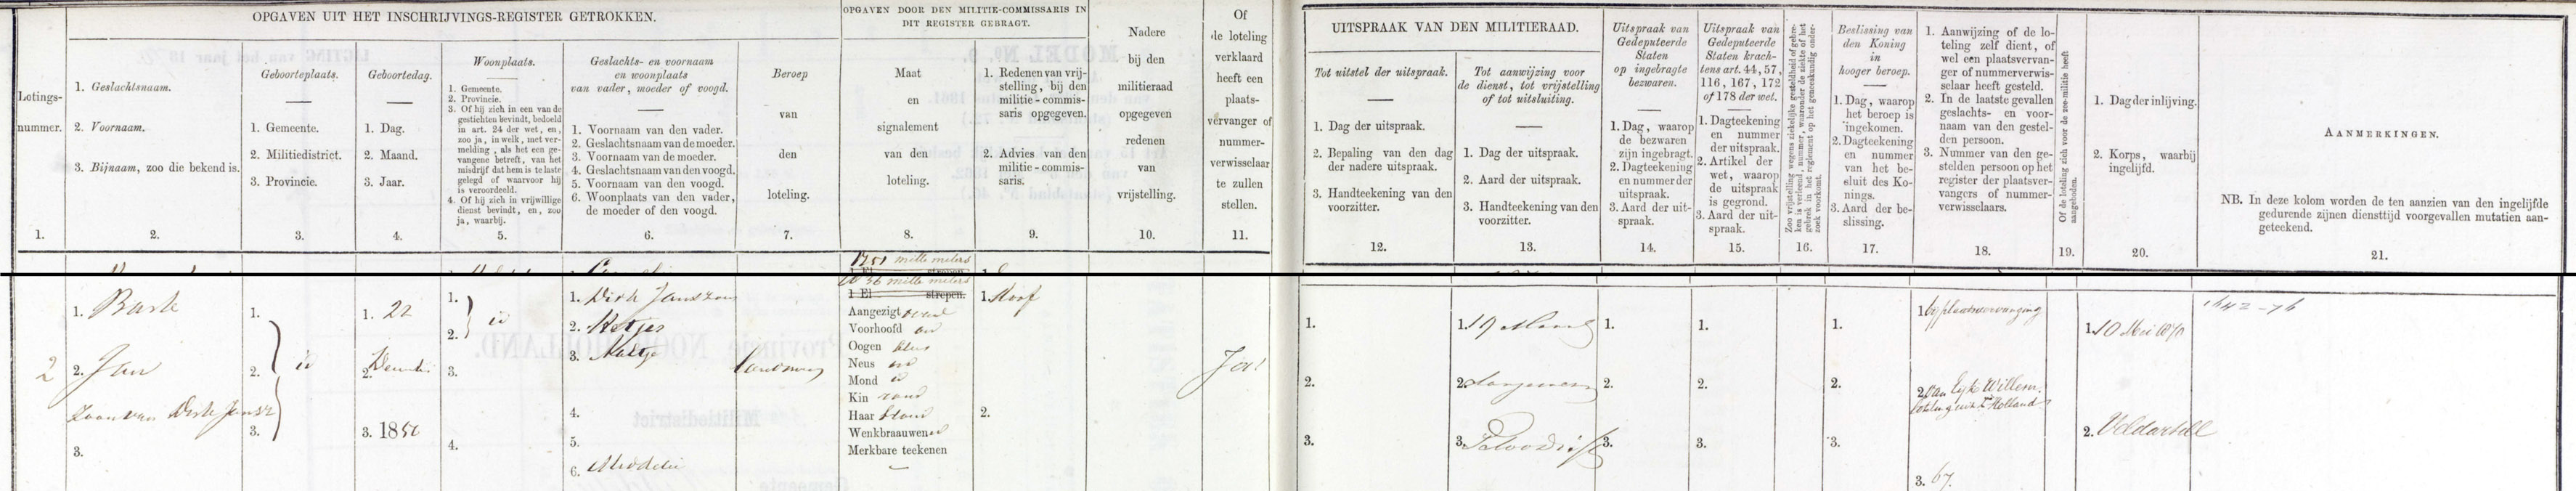 OPGAVEN UIT HET INSCHRIJVINGS-REGISTER GETROKKEN.
OPGAVEN DOOR DEN MILITIE-COMMISSARIS IN
DIT REGISTER GEBRAGT.
Lotings-
nummer.
1.
1. Geslachtsnaam.
2. Voornaam.
3. Bijnaam, zoo die bekend is.
2.
Geboorteplaats.
1. Gemeente.
2. Militiedistrict.
3. Provincie.
3.
Geboortedag.
1. Dag.
2. Maand.
3. Jaar.
4.
Woonplaats.
1. Gemeente.
2. Provincie.
3. Of hij zich in een van de
gestichten bevindt, bedoeld
in art. 24 der wet, en,
zoo ja, in welk, met ver-
melding, als het een ge-
vangene betreft, van het
misdrijf dat hem is te laste
gelegd of waarvoor hij
is veroordeeld.
4. Of hij zich in vrijwillige
dienst bevindt, en, zoo
ja, waarbij.
5.
Geslachts- en voornaam
en woonplaats
van vader, moeder of voogd.
1. Voornaam van den vader.
2. Geslachtsnaam van de moeder.
3. Voornaam van de moeder.
4. Geslachtsnaam van den voogd.
5. Voornaam van den voogd.
6. Woonplaats van den vader,
de moeder of den voogd.
6.
Beroep
van
den
loteling.
7.
Maat
en
signalement
van den
loteling.
8.
1. Redenen van vrij-
stelling, bij den
militie-commis-
saris opgegeven.
2. Advies van den
militie-commis-
saris.
9.
Nadere
bij den
militieraad
opgegeven
redenen
van
vrijstelling.
10.
Of
de loteling
verklaard
heeft een
plaats-
vervanger of
nummer-
verwisselaar
te zullen
stellen.
11.
UITSPRAAK VAN DEN MILITIERAAD.
Tot uitstel der uitspraak.
1. Dag der uitspraak.
2. Bepaling van den dag
der nadere uitspraak.
3. Handteekening van den
voorzitter.
12.
Tot aanwijzing voor
de dienst, tot vrijstelling
of tot uitsluiting.
1. Dag der uitspraak.
2. Aard der uitspraak.
3. Handteekening van den
voorzitter.
13.
Uitspraak van
Gedeputeerde
Staten
op ingebragte
bezwaren.
1. Dag, waarop
de bezwaren
zijn ingebragt.
2. Dagteekening
en nummer der
uitspraak.
3. Aard der uit-
spraak.
14.
Uitspraak van
Gedeputeerde
Staten krach-
tens art. 44, 57,
116, 167, 172
of 178 der wet.
1. Dagteekening
en nummer
der uitspraak.
2. Artikel der
wet, waarop
de uitspraak
is gegrond.
3. Aard der uit-
spraak.
15.
Zoo vrijstelling wegens ziekelijke gesteldheid of gebre-
ken is verleend, nummer, waaronder de ziekte of het
gebrek in het reglement op het geneeskundig onder-
zoek voorkomt.
16.
Beslissing van
den Koning
in
hooger beroep.
1. Dag, waarop
het beroep is
ingekomen.
2. Dagteekening
en nummer
van het be-
sluit des Ko-
nings.
3. Aard der be-
slissing.
17.
1. Aanwijzing of de lo-
teling zelf dient, of
wel een plaatsvervan-
ger of nummerverwis-
selaar heeft gesteld.
2. In de laatste gevallen
geslachts- en voor-
naam van den gestel-
den persoon.
3. Nummer van den ge-
stelden persoon op het
register der plaatsver-
vangers of nummer-
verwisselaars.
18.
Of de loteling zich voor de zee-militie heeft
aangeboden.
19.
1. Dag der inlijving.
2. Korps, waarbij
ingelijfd.
20.
AANMERKINGEN.
NB. In deze kolom worden de ten aanzien van den ingelijfde
gedurende zijnen diensttijd voorgevallen mutatien aan-
geteekend.
21.
1751 mille meters
2
1. Bark
2. Jan
Zoon van Dirk Jansz
3.
1.
2. id
3.
1. 22
2.
3. 1850
1.
2. id
3.
4.
1. Dirk Janszoon
2.
3. Aaltje
4.
5.
6. Middelie
Landman
mille meters
1 El strepen.
Aangezigt ovaal
Voorhoofd
Oogen blauw
Neus
Mond id
Kin rond
Haar blond
Wenkbraauwen id
Merkbare teekenen
1.
2.
Ja
1.
2.
3.
1. 19 Maart
2. Aangewezen
3.
1.
2.
3.
1.
2.
3.
1.
2.
3.
1. bij plaatsvervanging
2. van Eyk Willem.
loteling uit Z Holland
3. 67.
1. 10 Mei 1870
2. Veldartill
1642-76